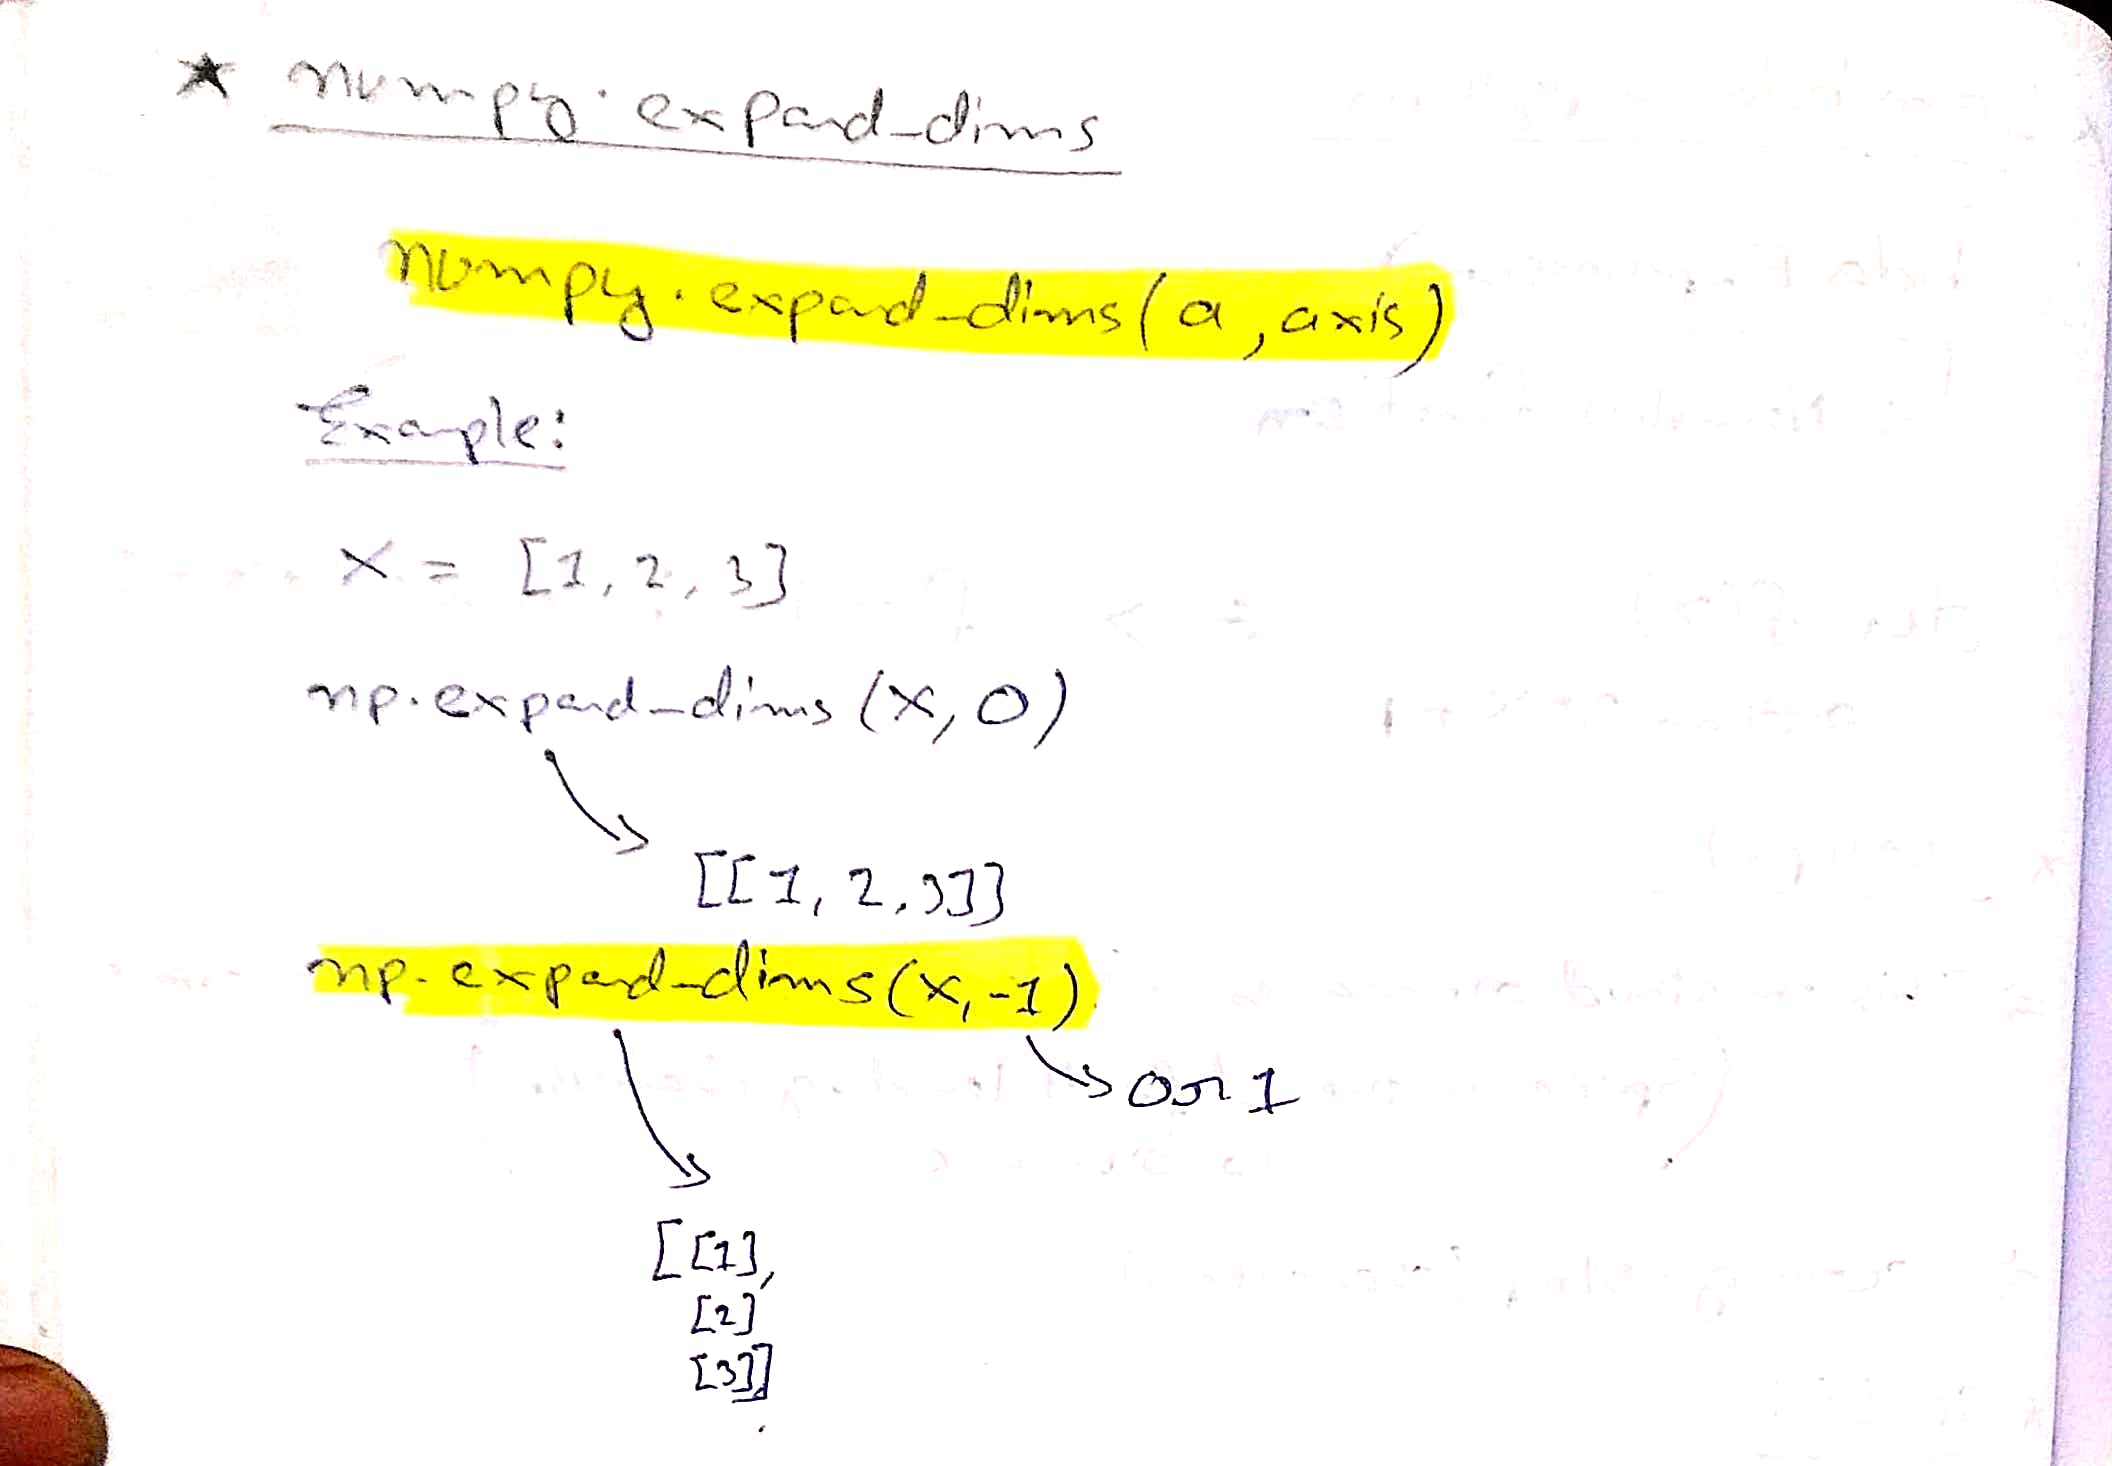 * numpy.expand_dims
numpy.expand_dims(a, axis)
Example:
x = [1, 2, 3]
np.expand_dims(x, 0)
[[1, 2, 3]]
np.expand_dims(x, -1)
or 1
[[1],
[2]
[3]]